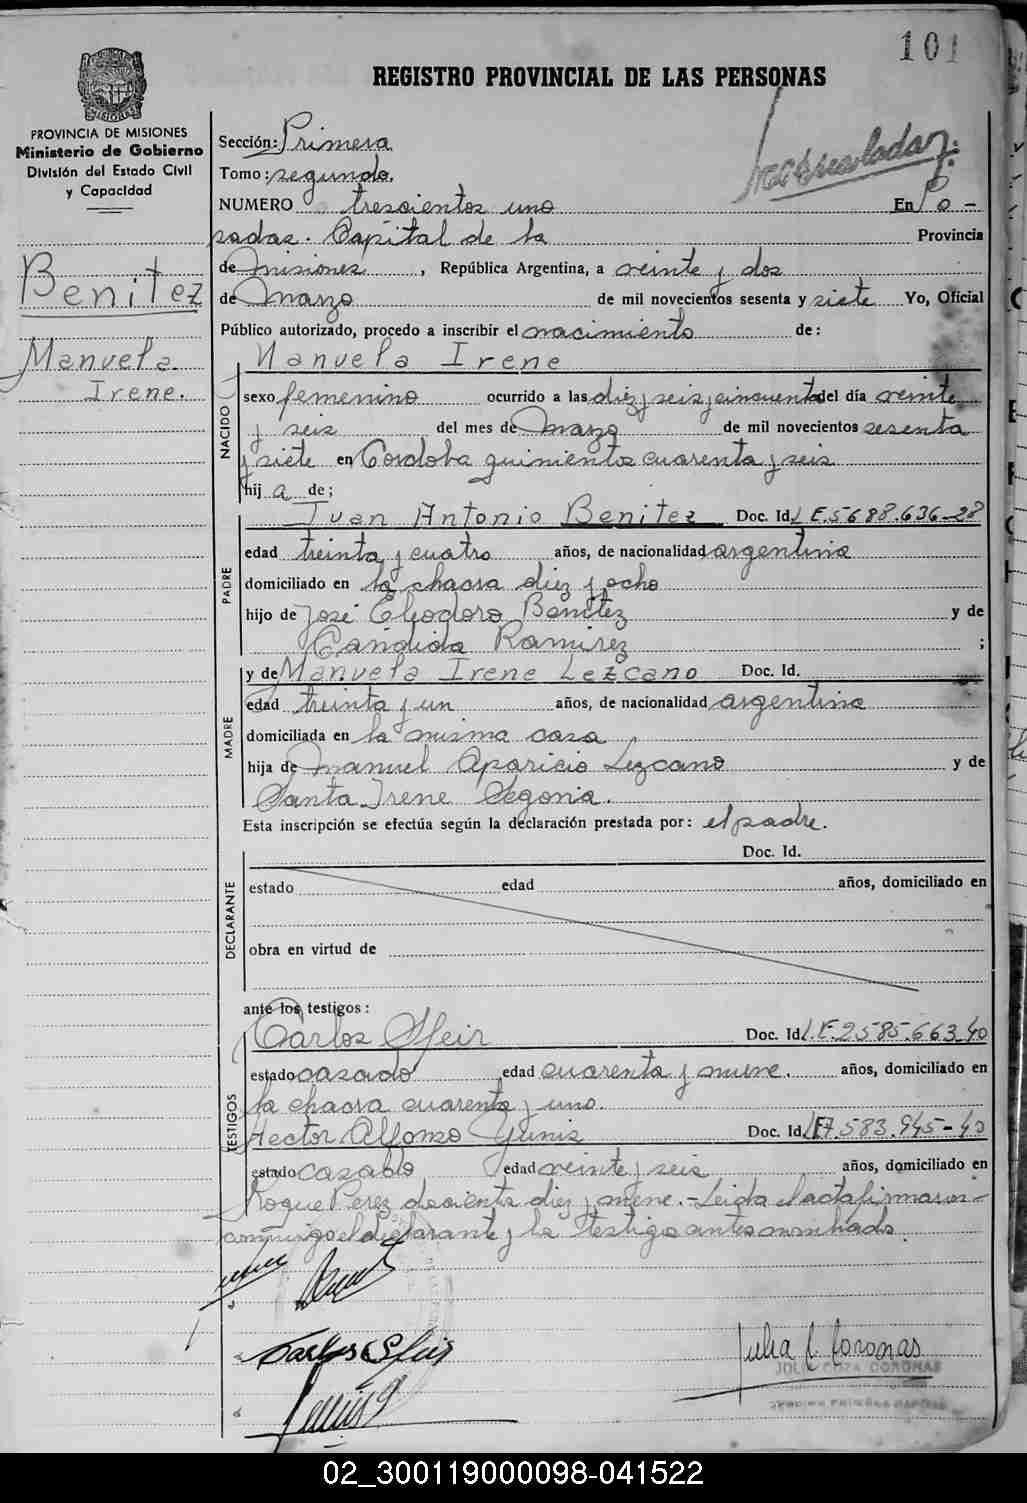 101
REGISTRO PROVINCIAL DE LAS PERSONAS
PROVINCIA DE MISIONES
Ministerio de Gobierno
División del Estado Civil
y Capacidad
Benitez
Manuela
Irene.
Sección: Primera
Tomo: segundo.
NUMERO trescientos uno En Po-
sadas. Capital de la Provincia
de Misiones, República Argentina, a veinte y dos
de Marzo de mil novecientos sesenta y siete Yo, Oficial
Público autorizado, procedo a inscribir el nacimiento de:
Manuela Irene
NACIDO
sexo femenino ocurrido a las diez y seis y cincuenta del día veinte
y seis del mes de Marzo de mil novecientos sesenta
y siete en Cordoba quinientos cuarenta y seis
hij a de;
PADRE
Juan Antonio Benitez Doc. Id. L.E. 5688.636-28
edad treinta y cuatro años, de nacionalidad argentina
domiciliado en la chacra diez y ocho
hijo de José Eliodoro Benitez y de
Candida Ramirez ;
MADRE
y de Manuela Irene Lezcano Doc. Id.
edad treinta y un años, de nacionalidad argentina
domiciliada en la misma casa
hija de Manuel Aparicio Lezcano y de
Santa Irene Segovia.
Esta inscripción se efectúa según la declaración prestada por: el padre.
DECLARANTE
Doc. Id.
estado edad años, domiciliado en
obra en virtud de
ante los testigos:
TESTIGOS
Carlos Sfeir Doc. Id. L.E. 2585.663-40
estado casado edad cuarenta y nueve. años, domiciliado en
la chacra cuarenta y uno.
Hector Alfonso Yunis Doc. Id. LE 7.583.945-40
estado casado edad veinte y seis años, domiciliado en
Roque Perez doscientos diez y nueve.- Leida el acta firmaron
conmigo el declarante y los testigos antes nombrado.
Carlos Sfeir
Julia Coronas
CORONAS
02_300119000098-041522